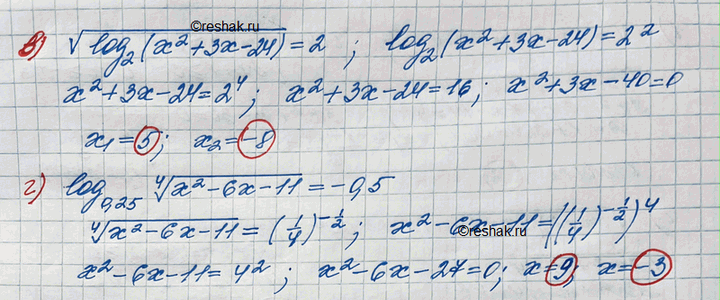 ©reshak.ru
в) √(log₂(x²+3x-24)) = 2 ; log₂(x²+3x-24)=2²
x²+3x-24=2⁴; x²+3x-24=16; x²+3x-40=0
x₁=5; x₂=-8
г) log₀,₂₅ ⁴√(x²-6x-11) = -0,5
⁴√(x²-6x-11) = (1/4)^(-1/2); x²-6x-11=((1/4)^(-1/2))⁴
©reshak.ru
x²-6x-11=4²; x²-6x-27=0; x=9; x=-3